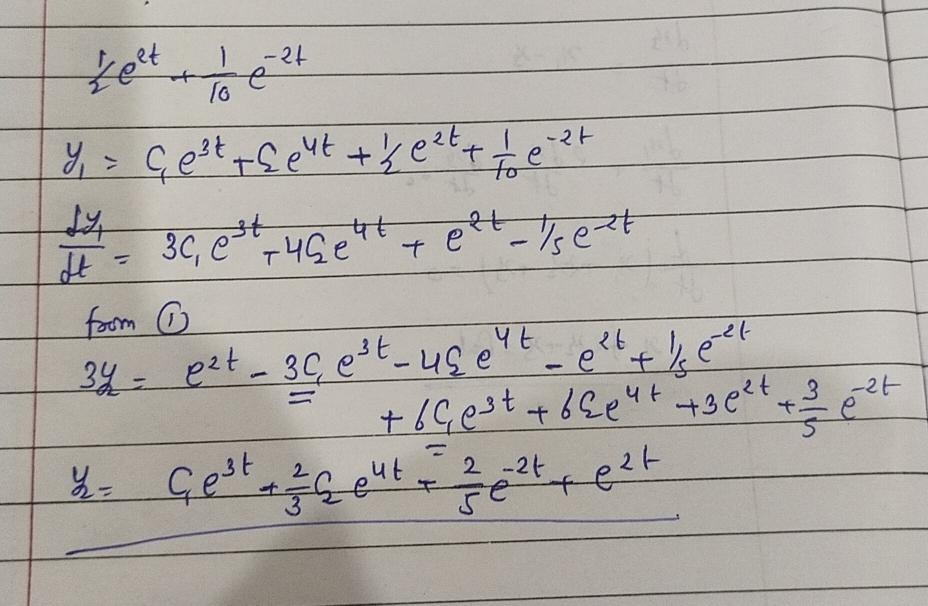 ½e^{2t} + 1/10 e^{-2t}
y₁ = C₁e^{3t} + C₂e^{4t} + ½e^{2t} + 1/10 e^{-2t}
dy₁/dt = 3C₁e^{3t} + 4C₂e^{4t} + e^{2t} - 1/5 e^{-2t}
from ①
3y₂ = e^{2t} - 3C₁e^{3t} - 4C₂e^{4t} - e^{2t} + 1/5 e^{-2t}
+ 6C₁e^{3t} + 6C₂e^{4t} + 3e^{2t} + 3/5 e^{-2t}
y₂ = C₁e^{3t} + 2/3 C₂e^{4t} + 2/5 e^{-2t} + e^{2t}